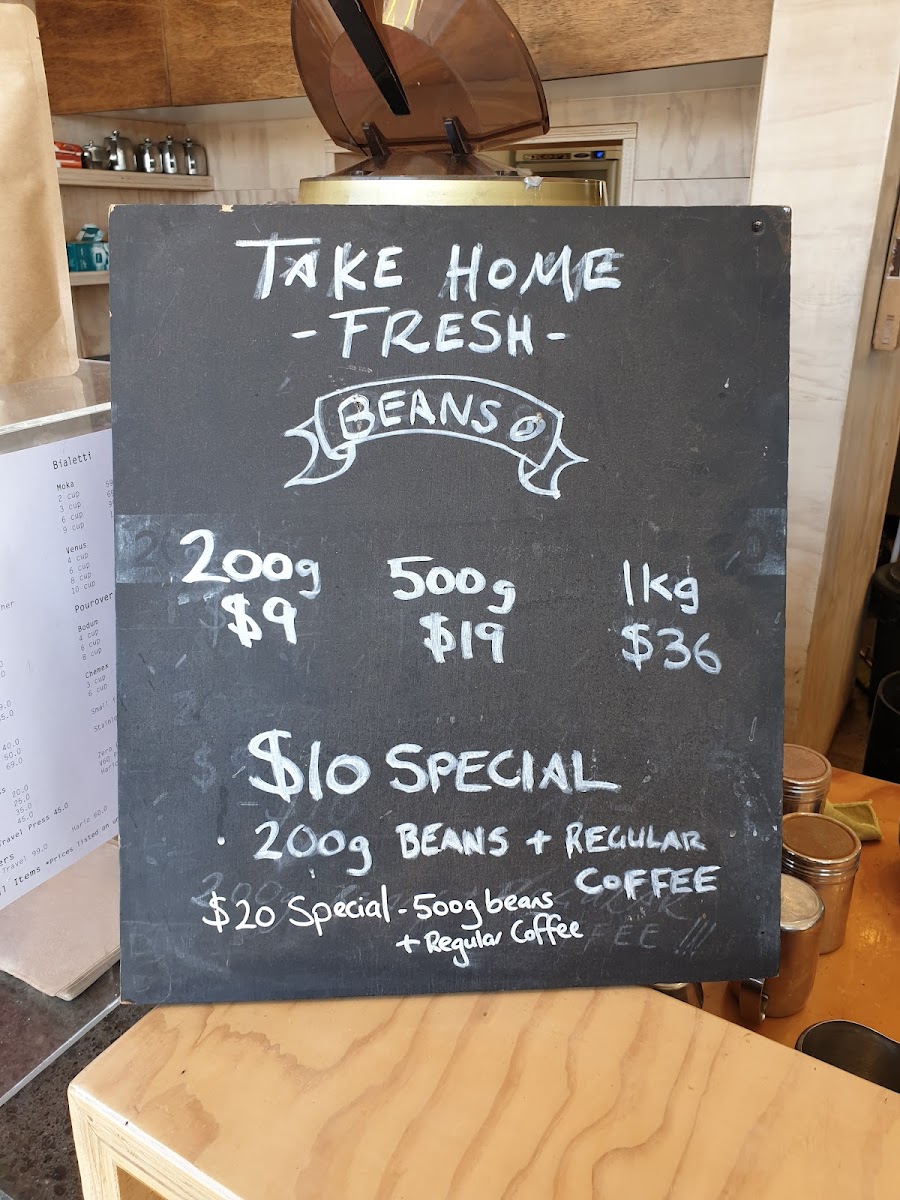 TAKE HOME
-FRESH-
BEANS
200g
$9
500g
$19
1kg
$36
$10 SPECIAL
200g BEANS + REGULAR
COFFEE
$20 Special - 500g beans
+ Regular Coffee
Bialetti
Moka
2 cup
3 cup
6 cup
9 cup
Venus
4 cup
6 cup
8 cup
10 cup
Pourover
Bodum
4 cup
6 cup
8 cup
Chemex
3 cup
6 cup
40.0
50.0
69.0
20.0
25.0
35.0
45.0
Travel Press 45.0
Travel 99.0
Items *Prices listed on